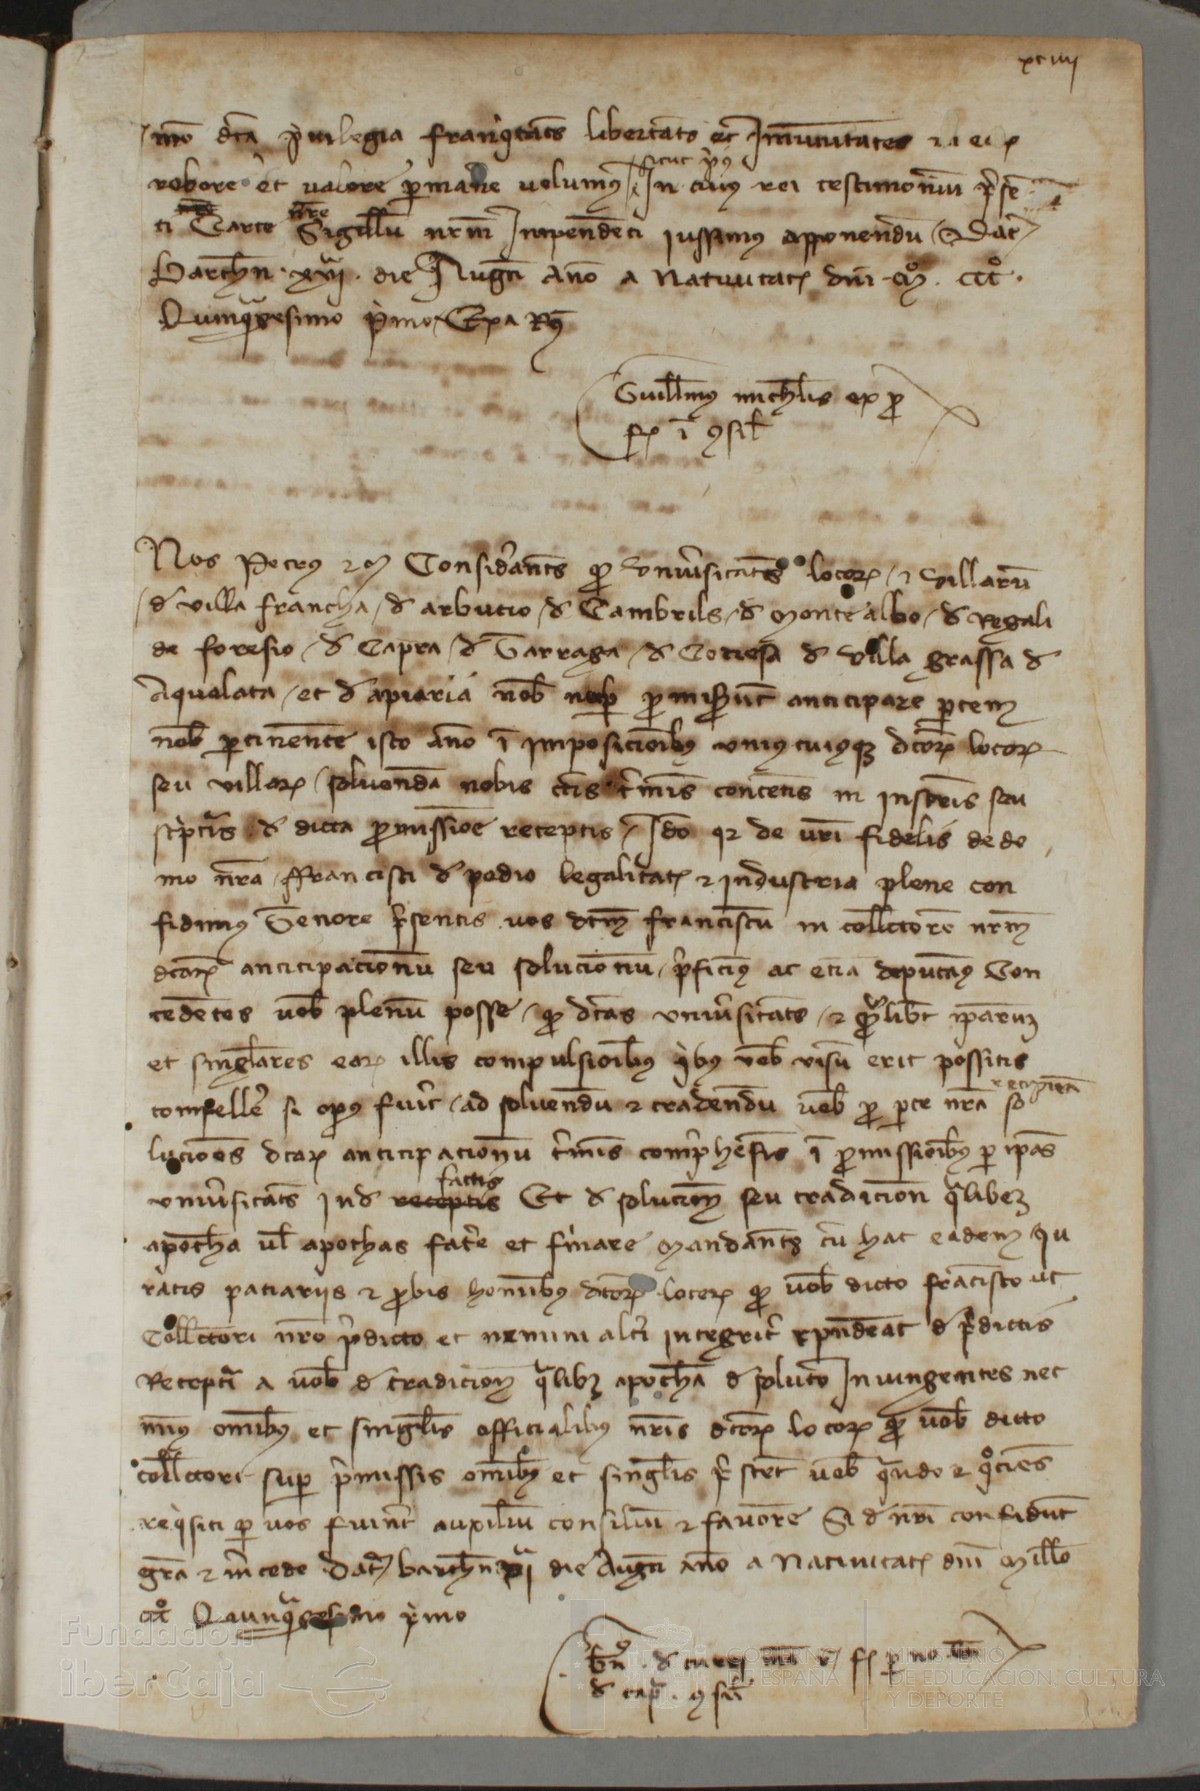 xciiij
dca privilegia franqtates libertates et Inmunitates
robore et valore permane volumus sicut prius In cuius rei testimoniu prese
ti Carte nre Sigillu nrm Inpendeti iussimus apponendu Dat
Barchn xxvi die Augti Anno a Nativitate dni Mo CCCo
Quinqgesimo primo Expa Rg
Guillmus michlis ex p
i consil
Nos Petrus etc Considantes quod Universitates locor et Villaru
de Villa francha de arbucio de Cambrils de Monte albo de Regali
de foresio de Capra de Tarraga de Villa grassa de
Aqualata et de apiaria nob nup promiserut anticipare partem
nob ptinente isto anno i Imposicionibus uniuscuiusque dcor locor
seu villar solvenda nobis ctis tminis contentis in Instris seu
scpturis de dicta promissione receptis Ido qr de vri fidelis de do
mo nra ffrancisci de podio legalitate et industria plene con
fidimus Tenore presentis vos dcm franciscu in collctore nrm
dcar anticipacionu seu solucionu preficimus ac etia deputamus Con
cedentes vob plenu posse quod dcas universitates et qmlibt ipsarum
et singlares ear illis compulsionibus qbus vob visu erit possitis
compeller si opus fuerit ad solvendu et tradendu vob pro pte nra so
lucioes dcar anticipacionu tminis comprhesis i promissionibus per ipas
universitates Inde factis Et de solucione seu tradicion qlibet
apocha vl apochas facre et firmare Mandantes cu hac eadem Iu
ratis paciariis et probis hominibus dcor locor quod vob dicto francisco ut
Collctori nro predicto et nemini altri integrit rpndeat de predictis
Receptur a vob de tradicion qlibet apocha de soluto Iniungentes nec
minus omibus et singlis officialibus nris dcor locor quod vob dicto
collctori super premissis omibus et singlis prestent vob qndo et qociens
reqsiti per vos fuerint auxiliu consiliu et favore Si de nri confidunt
gra et mcede Dat barchn die Augti anno a Nativitate dni Millo
CCCo Quinqgesimo primo
Fundación
iberCaja
GOBIERNO
DE ESPAÑA
MINISTERIO
DE EDUCACIÓN, CULTURA
Y DEPORTE